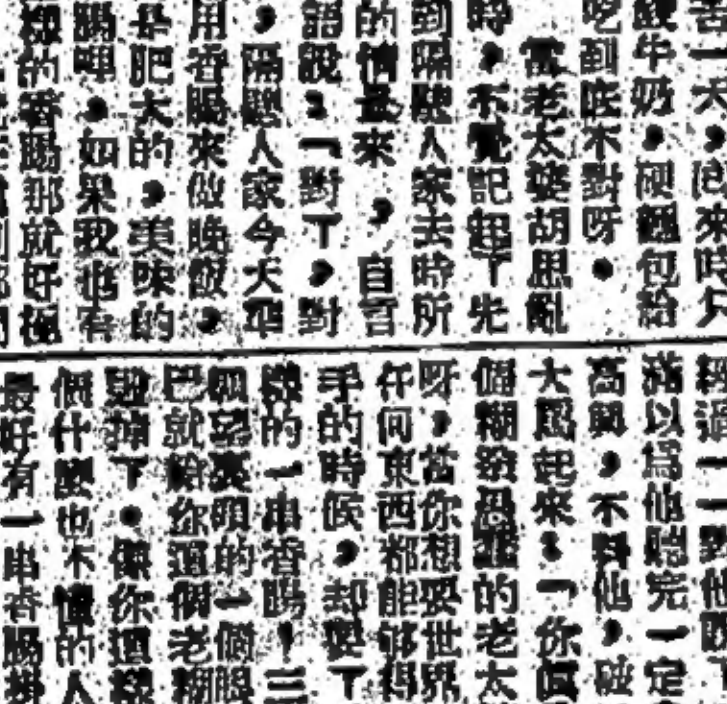 大，回來時只
牛奶，硬麵包給
吃到底不對呀。
當老太婆胡思亂
時，不覺記起了先
到隔壁人家去時所
的情景來，自言
語說：「對了，對
，隔壁人家今天拿
用香腸來做晚飯，
是肥大的，美味的
腸哩，如果我也有
樣的香腸那就好極
經過一一對他
滿以爲他聽完一定
高興，不料他，破
大罵起來：「你真
個糊塗愚蠢的老太
呀，當你想要世界
任何東西都能够得
手的時候，却要了
樣的一串香腸！三
望裏頭的一個眼
巴就給你這個老糊
掉了。像你這樣
個什麼也不懂的人
最好有一串香腸掛